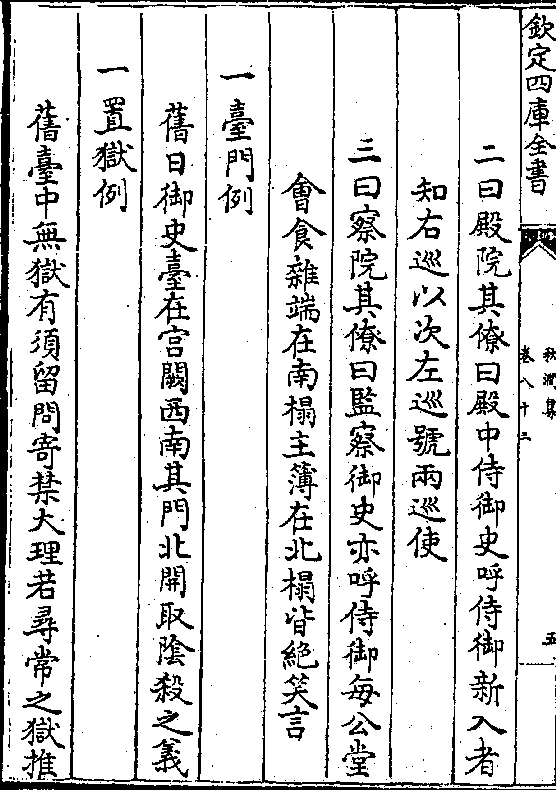 欽定四庫全書
秋澗集
卷八十三
五
二曰殿院其僚曰殿中侍御史呼侍御新入者
知右巡以次左巡號兩巡使
三曰察院其僚曰監察御史亦呼侍御每公堂
會食雜端在南榻主簿在北榻皆絶笑言
一臺門例
舊日御史臺在宫闕西南其門北開取陰殺之義
一置獄例
舊臺中無獄有須留問寄禁大理若尋常之獄推